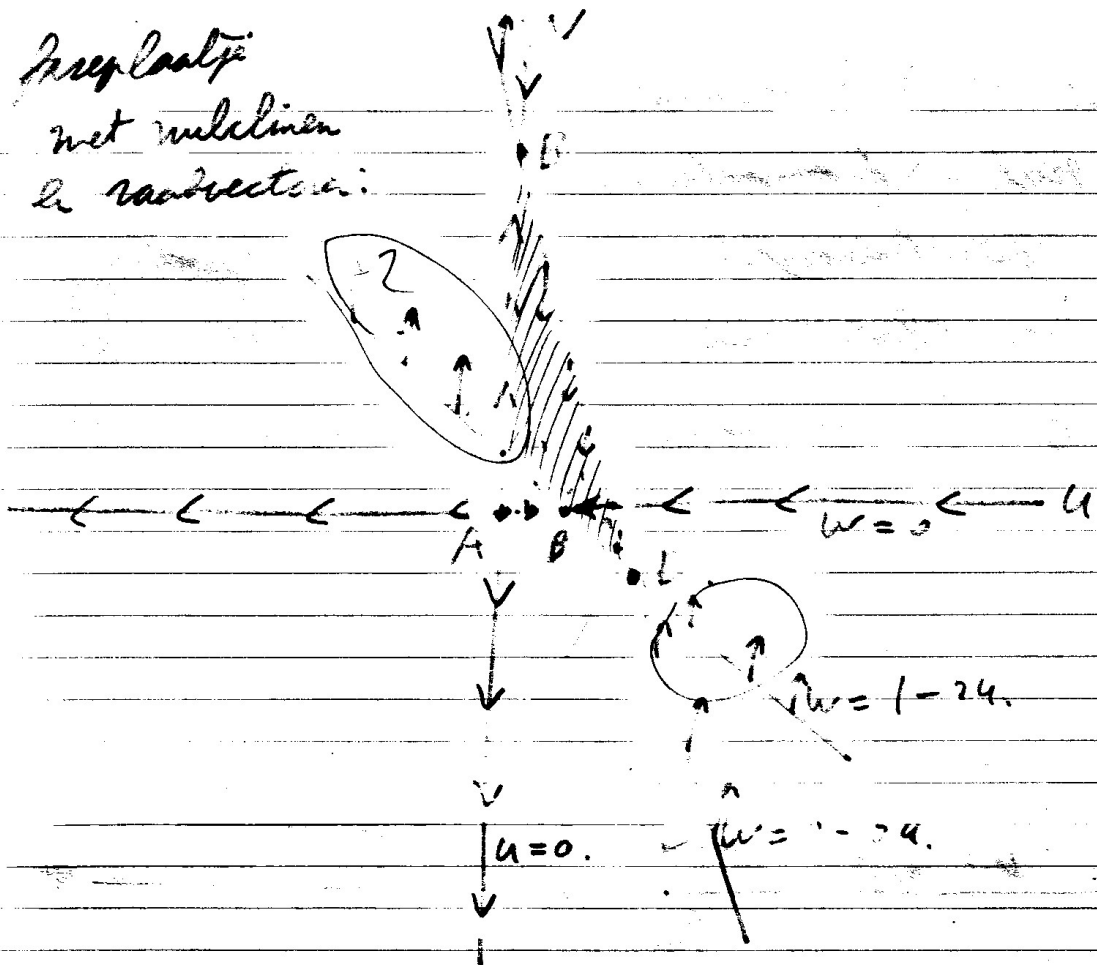 Faseplaatje
met nulclinen
en raadvectoren:
V
B
2
A B
w = 0
u
L
w = 1 - 2u.
u = 0.